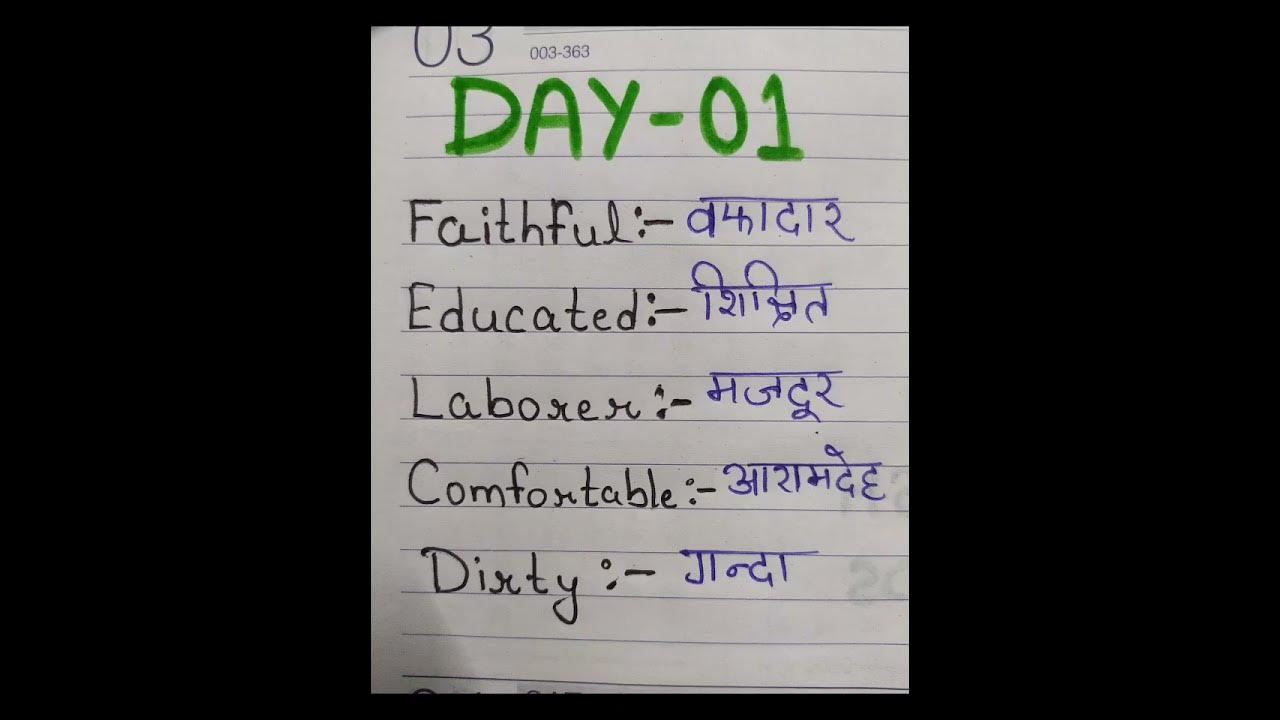 03
003-363
DAY-01
Faithful:- वफादार
Educated:- शिक्षित
Laborer:- मजदूर
Comfortable:- आरामदेह
Dirty:- गन्दा